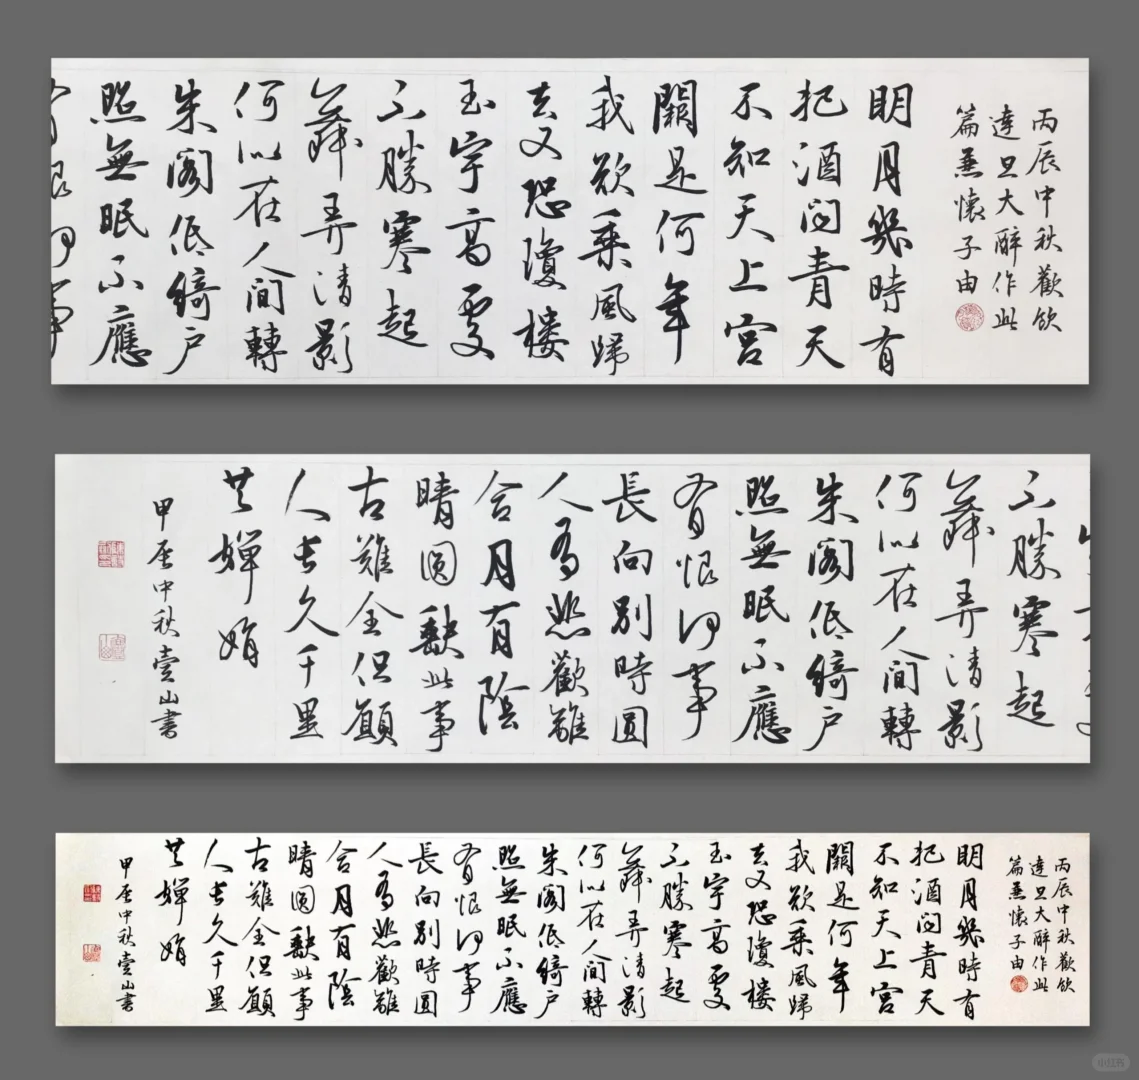 丙辰中秋歡飲
達旦大醉作此
篇兼懷子由
明月幾時有
把酒問青天
不知天上宮
闕是何年
我欲乗風歸
去又恐瓊楼
玉宇高處
不勝寒起
舞弄清影
何似在人間轉
朱閣低綺户
照無眠不應
有恨何事
不勝寒起
舞弄清影
何似在人間轉
朱閣低綺户
照無眠不應
有恨何事
長向别時圓
人有悲歡離
合月有陰
晴圓缺此事
古難全但願
人長久千里
共嬋娟
甲辰中秋壹山書
丙辰中秋歡飲
達旦大醉作此
篇兼懷子由
明月幾時有
把酒問青天
不知天上宮
闕是何年
我欲乗風歸
去又恐瓊楼
玉宇高處
不勝寒起
舞弄清影
何似在人間轉
朱閣低綺户
照無眠不應
有恨何事
長向别時圓
人有悲歡離
合月有陰
晴圓缺此事
古難全但願
人長久千里
共嬋娟
甲辰中秋壹山書
小红书